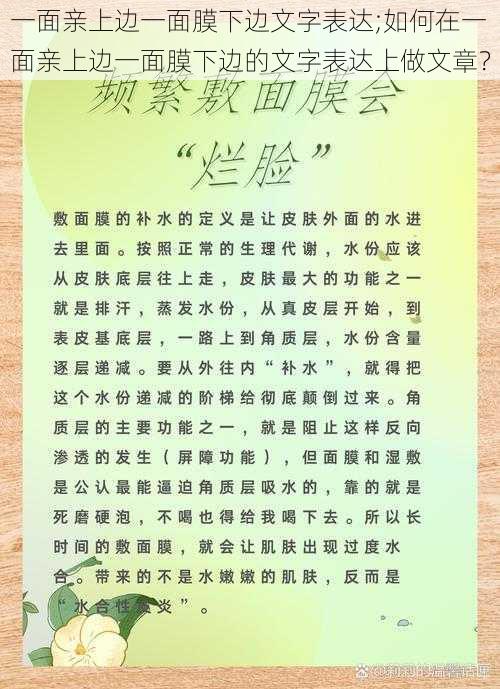 一面亲上边一面膜下边文字表达;如何在一
面亲上边一面膜下边的文字表达上做文章?
频繁敷面膜会
“烂脸”
敷面膜的补水的定义是让皮肤外面的水进
去里面。按照正常的生理代谢，水份应该
从皮肤底层往上走，皮肤最大的功能之一
就是排汗，蒸发水份，从真皮层开始，到
表皮基底层，一路上到角质层，水份含量
逐层递减。要从外往内“补水”，就得把
这个水份递减的阶梯给彻底颠倒过来。角
质层的主要功能之一，就是阻止这样反向
渗透的发生（屏障功能），但面膜和湿敷
是公认最能逼迫角质层吸水的，靠的就是
死磨硬泡，不喝也得给我喝下去。所以长
时间的敷面膜，就会让肌肤出现过度水
合。带来的不是水嫩嫩的肌肤，反而是
“水合性皮炎”。
莉莉的温馨话匣